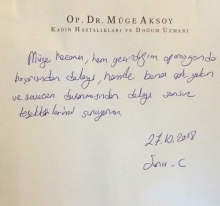 OP. DR. MÜGE AKSOY
KADIN HASTALIKLARI VE DOĞUM UZMANI
Müge hanım, hem geçirdiğim operasyonda
başarısından dolayı, hemde bana çok yakın
ve sevecen davranmasından dolayı sonsuz
teşekkürlerimi sunuyorum
27.10.2018